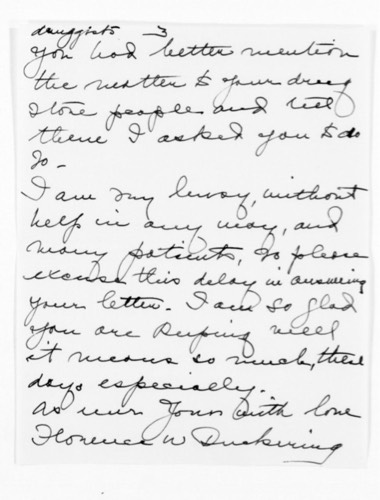 druggists 3
You had better mention
the matter to your drug
store people and tell
them I asked you to do
so -
I am very busy, without
help in any way, and
many patients, so please
excuse this delay in answering
your letter. I am so glad
you are keeping well
it means so much, these
days especially.
As ever Yours with love
Florence W Duckering